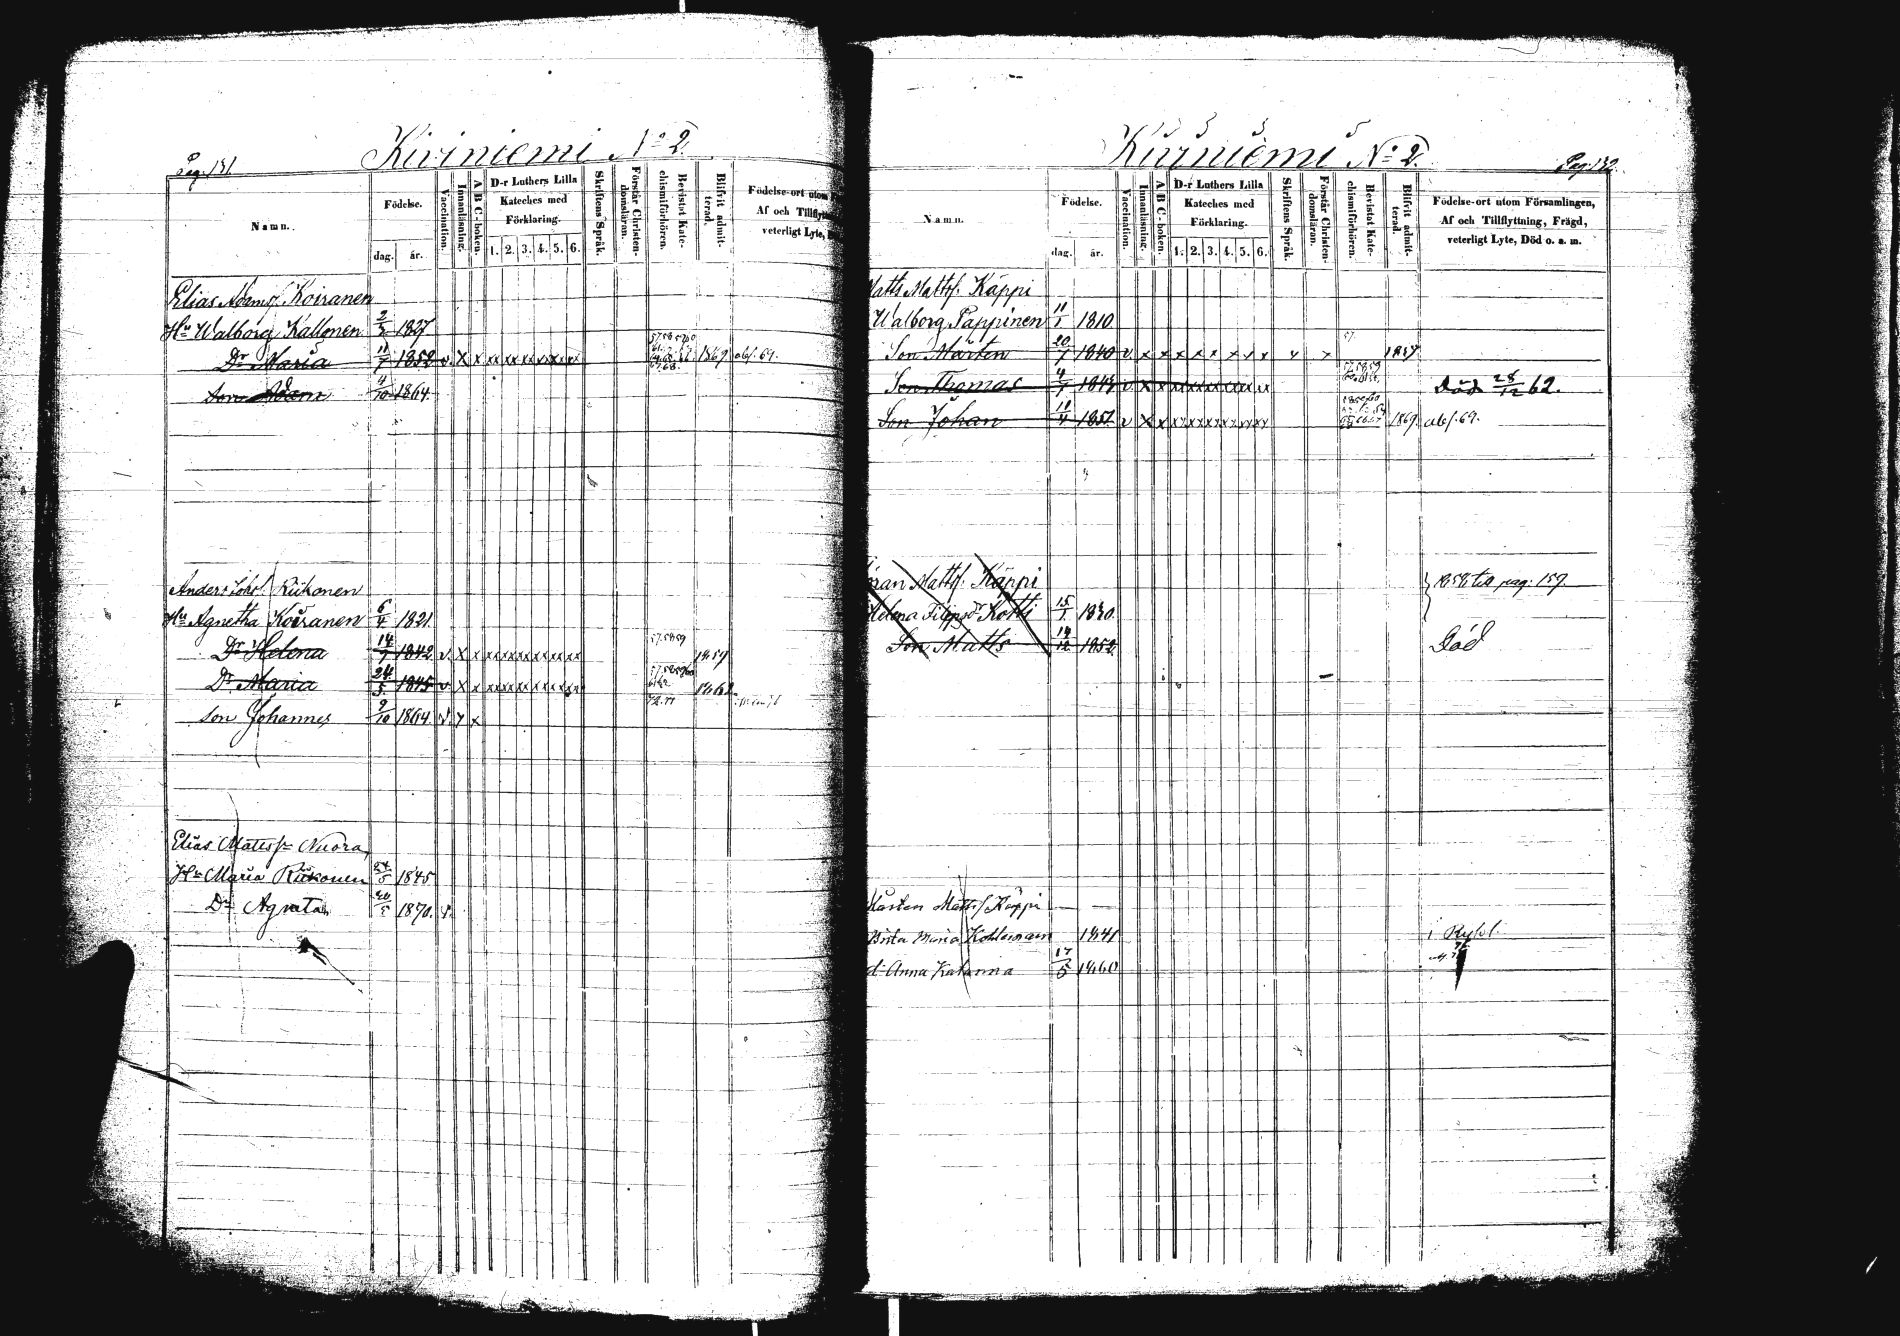 Pag. 131.
Kiviniemi No 2.
Namn.
Födelse.
dag.
år.
Vaccination.
Innanläsning.
A B C-boken.
D-r Luthers Lilla Kateches med Förklaring.
1. 2. 3. 4. 5. 6.
Skriftens Språk.
Förstår Christendomsläran.
Bevistat Katechismiförhören.
Blifvit admitterad.
Födelse-ort utom
Af och Tillflyttn
veterligt Lyte,
Elias Adamsf. Koiranen
Hu Walborg Kallonen 2/3 1827
Dr Maria 11/7 1852 v. x x xx xx xx xx xx xx 1869 abs. 69.
Son Adam 4/10 1864.
Anders Johsf Riikonen
Hu Agnetha Koiranen 6/4 1821
Dr Helena 14/7 1842 v x x xxxxxxxxxxxx 57.58 59 1859
Dr Maria 24/5 1845 v x x xxxxxxxxxxxx 1862
Son Johannes 9/10 1864. v. x x 72.77
Elias Mattsf Nuora
Hu Maria Riikonen 24/5 1845
Dr Agneta 1870. v.
Kiviniemi No 2.
Pag. 132.
Namn.
Födelse.
dag.
år.
Vaccination.
Innanläsning.
A B C-boken.
D-r Luthers Lilla Kateches med Förklaring.
1. 2. 3. 4. 5. 6.
Skriftens Språk.
Förstår Christendomsläran.
Bevistat Katechismiförhören.
Blifvit admitterad.
Födelse-ort utom Församlingen,
Af och Tillflyttning, Frägd,
veterligt Lyte, Död o. s. m.
Matts Mattsf. Käppi
Walborg Pappinen 11/1 1810
Son Mårten 20/7 1840 v x x x x x x x x x x x 57. 1857
Son Thomas 4/1 1844 v x x xxxxxxxxxxxx 57.58 59 Död 28/12 62.
Son Johan 11/4 1851 v x x xxxxxxxxxxxx 1869. abs. 69.
Mattsf. Käppi 1858 till pag. 157
Helena Filippsdr Kotti 15/1 1830.
Son Matts 14/12 1852. Död
Mårten Mattsf Käppi
Brita Maria 1841 i Rysl.
d. Anna Katarina 17/5 1860